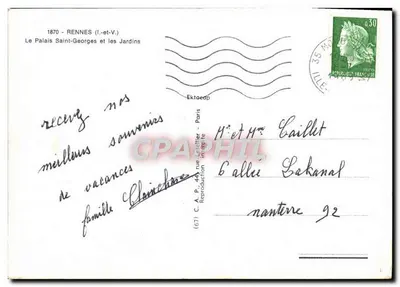 1870 - RENNES (I.-et-V.)
Le Palais Saint-Georges et les Jardins
0,30
REPUBLIQUE FRANÇAISE
35
ILLE-
Ektacolor
recevez nos
meilleurs souvenirs
de vacances
famille
CPARAMA
Mr et Mme Caillet
6 allée Lakanal
nanterre 92
C. A. P.
Paris
Reproduction interdite